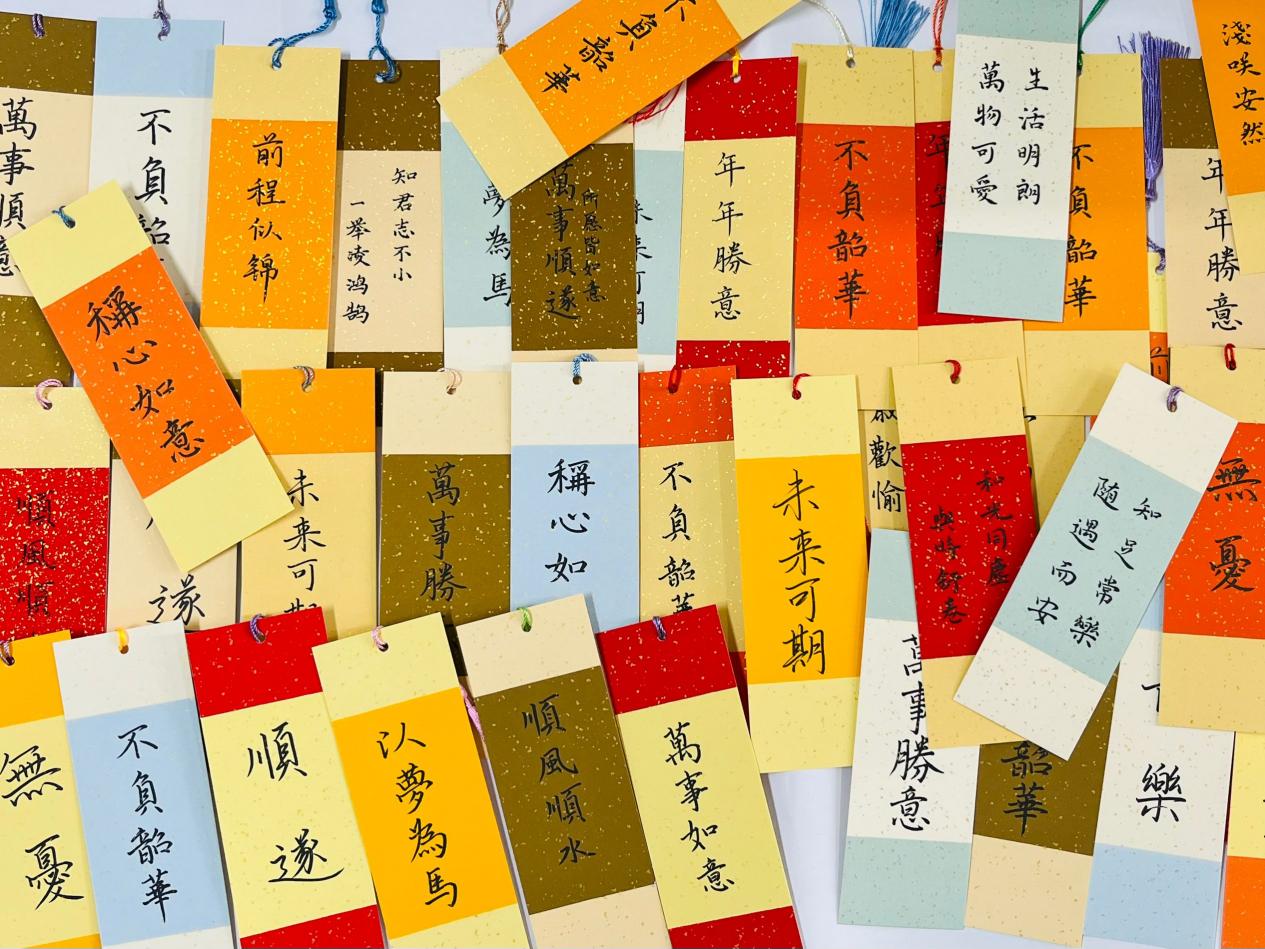 萬事順意
不負韶
前程似錦
知君志不小
一举凌鸿鹄
夢為馬
負韶華
萬事順遂
所愿皆如意
未来可期
年年勝意
不負韶華
年年
生活明朗
萬物可愛
不負韶華
年年勝意
淺咲安然
稱心如意
順風順
遂
未来可期
萬事勝
稱心如
不負韶華
未来可期
歡愉
和光同塵
與時舒卷
知足常樂
随遇而安
無憂
無憂
不負韶華
順遂
以夢為馬
順風順水
萬事如意
萬事勝意
韶華
樂